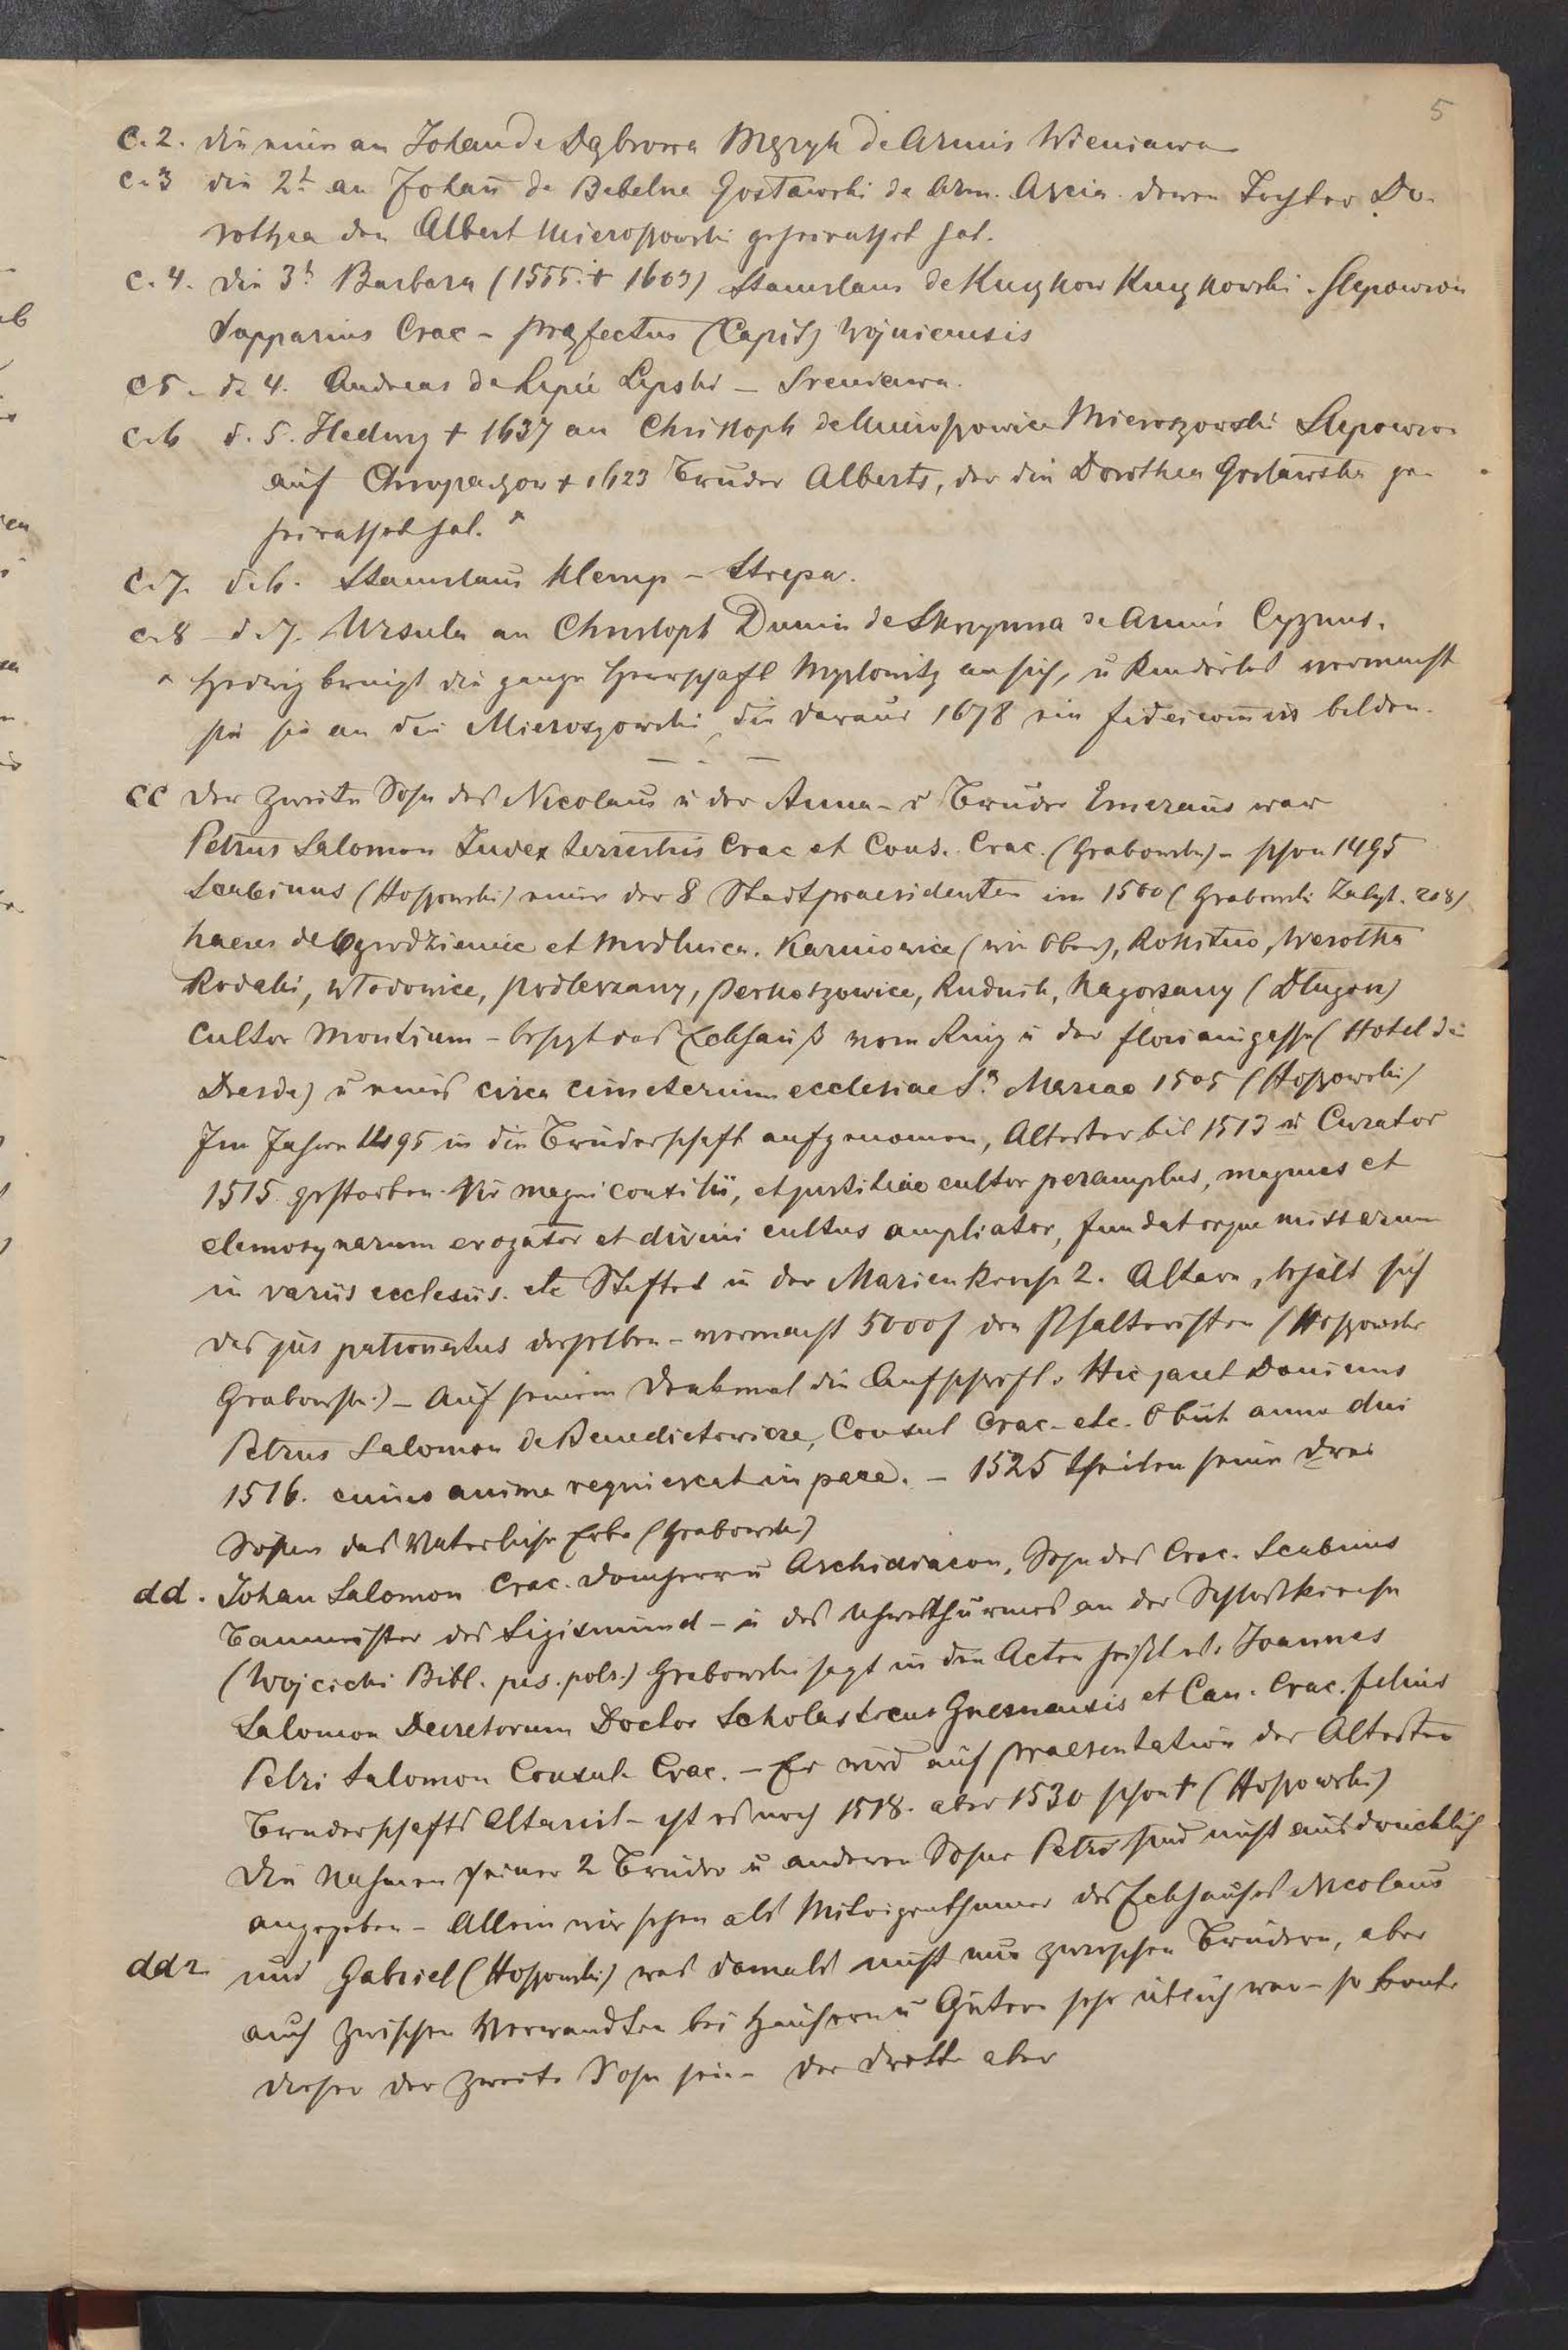 5
C. 2. die eine an Johan de Dąbrowa Męzyk de Armis Wieniawa
C. 3 die 2t an Johan de Bebelno Gosławski de Arm. Axcia. deren Tochter Do-
rothea den Albert Mieroszowski geheirathet hat.
C. 4. die 3t Barbara (1555. + 1603) Stanislaus de Kuczkow Kuczkowski. Slepowron
Dapparius Crac - Praefectus (Capit) Wojnicensis
C 5 - d. 4. Andreas de Lipie Lipski - Sreniawa.
C. 6 d. 5. Hedwig + 1637 an Christoph de Mieroszowice Mieroszowski Slepowron
auf Chropaczow + 1623 Bruder Alberts, der die Dorothea Gosławska ge-
heirathet hat. ^
C. 7. d. 6. Stanislaus Klemp - Strepa.
C. 8 - d. 7. Ursula an Christoph Dunin de Skrzynna de Armis Cygnus.
^ Hedwig bringt die ganze Herrschaft Myslowitz an sich, u Kinderlos vermacht
sie sie an die Mieroszowski, die daraus 1678 ein fideicommis bilden.
CC der zweite Sohn des Nicolaus u der Anna - u Bruder Emerams war
Petrus Salomon Iudex terrestris Crac et Cons. Crac. (Grabowski) - schon 1495
Scabinus (Hoszowski) einer der 8 Stadtpraesidenten im 1500 (Grabowski Zabyt. 208)
haeres de Ogrodzieniec et Modlnica. Karniowice (wie oben), Rokitno, Werothka
Rodaki, Włodowice, Podlerzany, Perkoszowice, Rudnik, Nagorzany (Długosz)
Cultor Montium - besizt das Eckhauß vom Ring u der Floriangasse (Hotel de
Dresde) u eines circa cimeterium ecclesiae St Mariae 1505 (Hoszowski)
Im Jahre 1495 in die Bruderschaft aufgenomen, Altester bis 1513 u Curator
1515. gestorben. Vir magni consilii, et justitiae cultor peramplus, magnus et
elemosynarum erogator et divini cultus ampliator, fundatorque missarum
in variis ecclesiis. etc Stiftet in der Marienkirche 2. Altare, behält sich
das jus patronatus derselben - vermacht 5000 f den Psalteristen (Hoszowski
Grabowski) - Auf seinem Denkmal die Aufschrift. Hic jacet Dominus
Petrus Salomon de Benedictowicze, Consul Crac. etc. Obiit anno dni
1516. cuius anima requiescat in pace. - 1525 theilen seine drei
Söhne das Vaterliche Erbe (Grabowski)
dd. Johan Salomon Crac. Domherr u Archidiacon, Sohn des Crac. Scabinus
Baumeister des Sigismund - u des Uhrthurmes an der Schloskirche
(Wojcicki Bibl. pis. pols.) Grabowski sagt in den Acten heißt es. Joannes
Salomon Decretorum Doctor Scholasticus Gnesnensis et Can. Crac. filius
Petri Salomon Consul. Crac. - Er wird auf Praesentation der Altesten
Bruderschafts Altarist - ist es noch 1518. aber 1530 schon + (Hoszowski)
Die Nahmen seiner 2 Bruder u anderen Sohne Petri sind nicht ausdrücklich
angegeben - Allein wir sehen als Miteigenthumer des Eckhauses Nicolaus
dd2 und Gabriel (Hoszowski) was damals nicht nur zwischen Brüdern, aber
auch zwischen Verwandten bei Häusern u Gütern sehr üblich war - so konte
dieser der zweite Sohn sein - der dritte aber